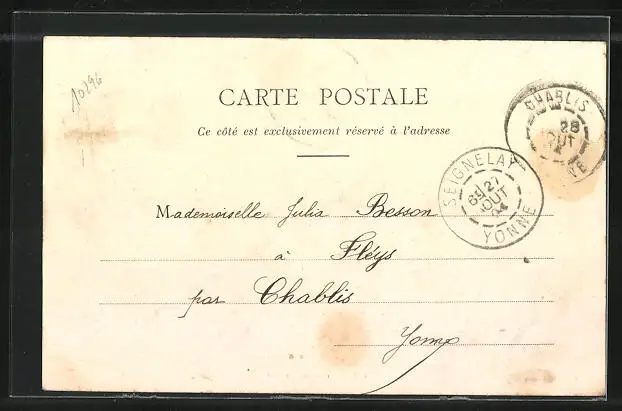 10296
CARTE POSTALE
Ce côté est exclusivement réservé à l'adresse
CHABLIS
28
OUT
NE
SEIGNELAY
27
OUT
YONNE
Mademoiselle Julia Besson
à Fléys
par Chablis
Yonne